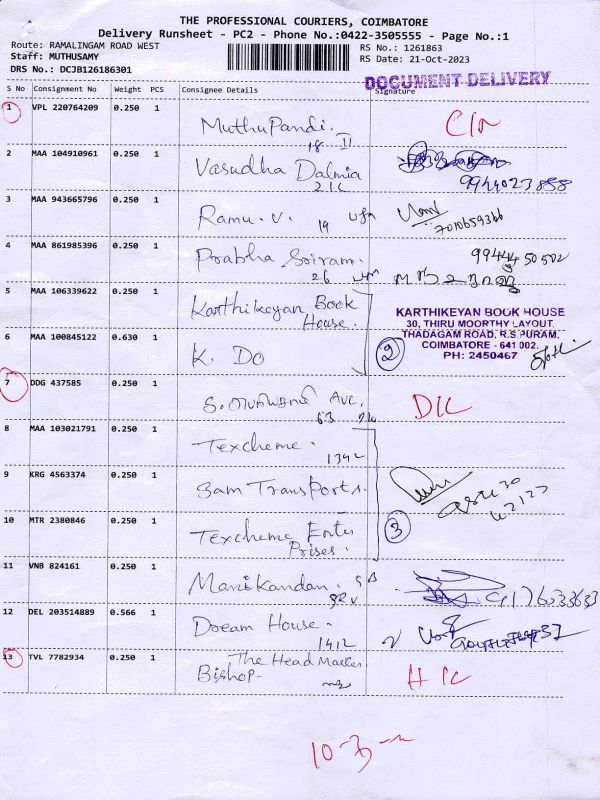 THE PROFESSIONAL COURIERS, COIMBATORE
Delivery Runsheet - PC2 - Phone No.:0422-3505555 - Page No.:1
Route: RAMALINGAM ROAD WEST
RS No.: 1261863
Staff: MUTHUSAMY
RS Date: 21-Oct-2023
DRS No.: DCJB126186301
DOCUMENT DELIVERY
S No Consignment No Weight PCS Consignee Details Signature
1 VPL 220764209 0.250 1 MuthuPandi.
18 II
2 MAA 104910961 0.250 1 Vasudha Dalmia
9944023858
3 MAA 943665796 0.250 1 Ramu. V.
19
7010659366
4 MAA 861985396 0.250 1 Prabha Sriram.
26
5 MAA 106339622 0.250 1 Karthikeyan Book
House.
KARTHIKEYAN BOOK HOUSE
30, THIRU MOORTHY LAYOUT,
THADAGAM ROAD, R.S PURAM,
COIMBATORE - 641 002.
PH: 2450467
6 MAA 100845122 0.630 1 K. Do
2
7 DDG 437585 0.250 1
63
8 MAA 103021791 0.250 1 Texcheme.
1342
9 KRG 4563374 0.250 1 Sam Transports.
10 MTR 2380846 0.250 1 Texcheme Enter
Prises.
3
11 VNB 824161 0.250 1 Manikandan.
12 DEL 203514889 0.566 1 Dream House.
1412
13 TVL 7782934 0.250 1 The Head Master
Bishop-